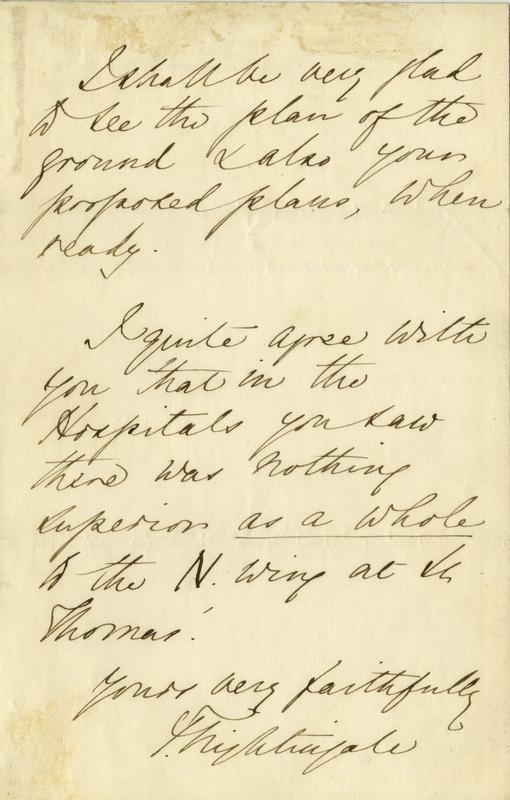 I shall be very glad
to see the plan of the
ground & also your
proposed plans, when
ready.
I quite agree with
you that in the
Hospitals you saw
there was nothing
superior as a whole
to the N. wing at St.
Thomas'.
Yours very faithfully
F. Nightingale